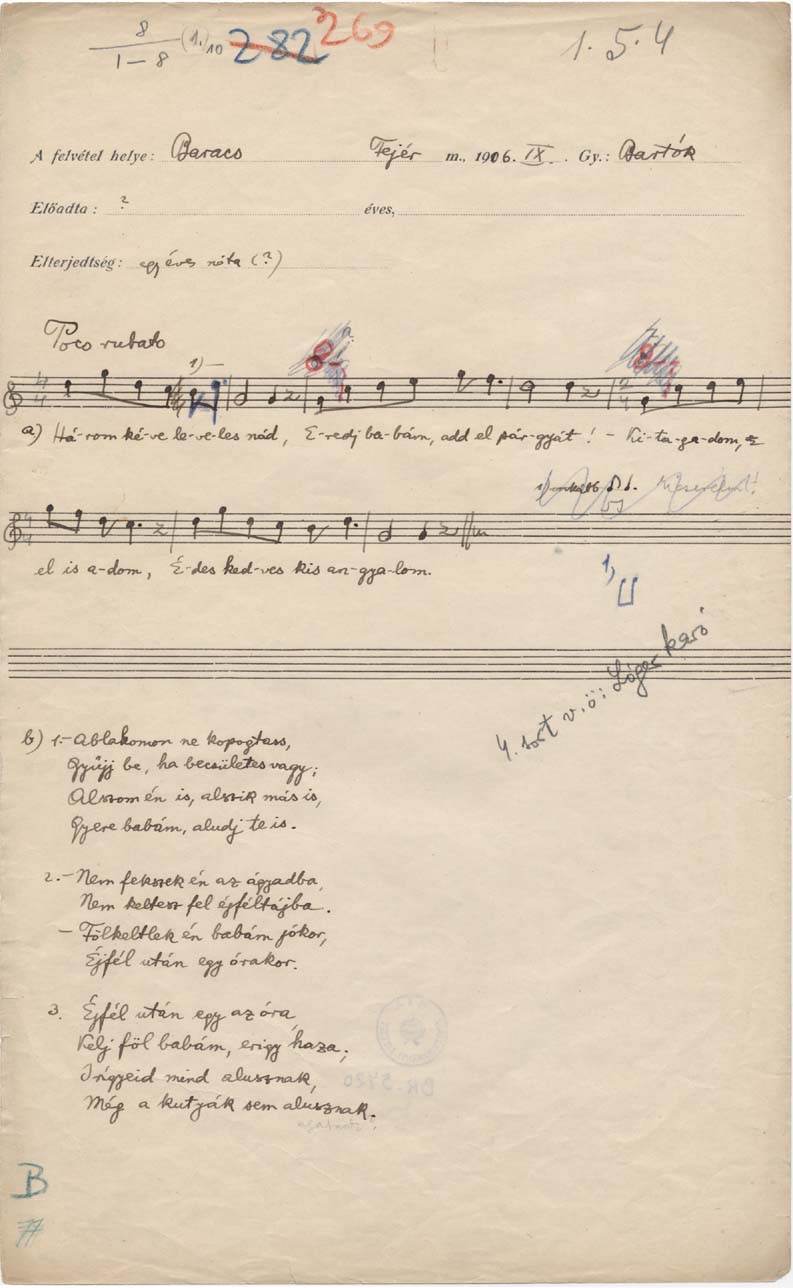 8
1–8
(1.)
10
282
269
1. 5. 4
A felvétel helye: Baracs Fejér m., 1906. IX. Gy.: Bartók
Előadta: ? éves,
Elterjedtség: egyéves nóta (?)
Poco rubato
1)
a) Há-rom ké-ve le-ve-les nád, E-redj ba-bám, add el pár-gyát! – Ki-ta-ga-dom,
el is a-dom, É-des ked-ves kis an-gya-lom.
1)
4. sort v.ö.: Lóger karó
b) 1.– Ablakomon ne kopogtass,
Gyüjj be, ha becsületes vagy;
Alszom én is, alszik más is,
Gyere babám, aludj te is.
2.– Nem fekszek én az ágyadba,
Nem keltesz fel éjféltájba.
– Fölkeltlek én babám jókor,
Éjfél után egy órakor.
3. Éjfél után egy az óra,
Kelj föl babám, erigy haza;
Irígyeid mind alusznak,
Még a kutyák sem alusznak.
B
77